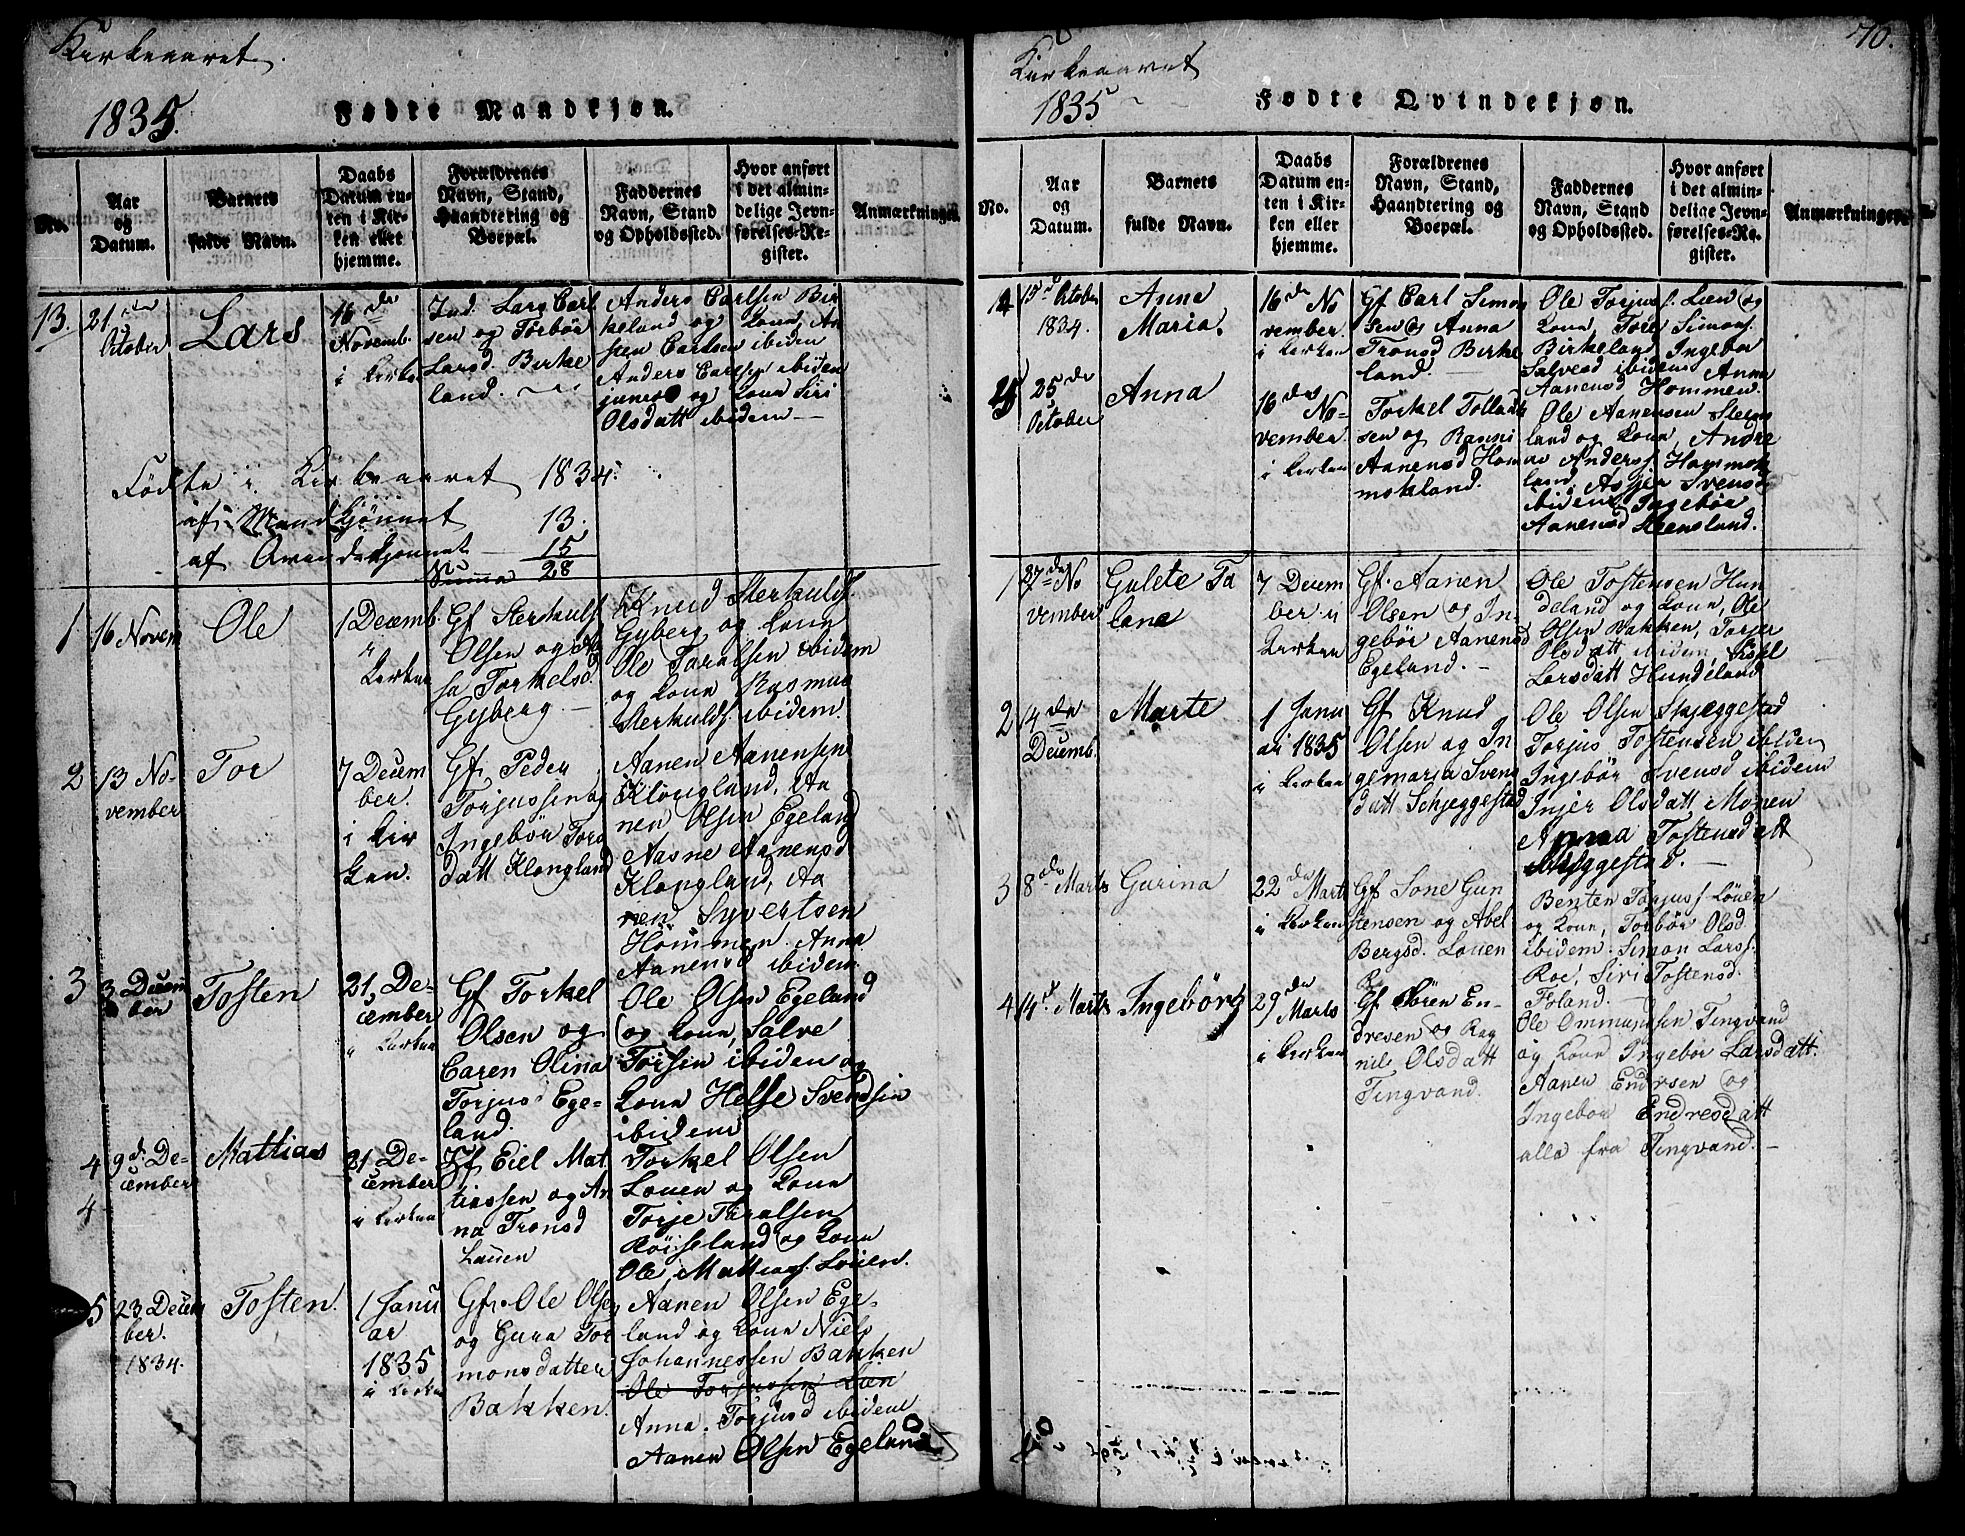 Kirkeaaret
1835.
Fødte Mandkjøn.
No.
Aar og Datum.
Barnets fulde Navn.
Daabs Datum enten i Kirken eller hjemme.
Forældrenes Navn, Stand, Haandtering og Boepæl.
Faddernes Navn, Stand og Opholdssted.
Hvor anført i det almindelige Jevnførelses-Register.
Anmærkninger.
13.
21de
October
Lars
16de
Novemb.
i Kirke
Ind. Lars Carl
sen og Torbør
Larsd. Birke
land.
Anders Carlsen Bir
keland og Kone, An
sten Carlsen ibiden
Anders Carlsen ibiden
junior og Kone Siri
Olsdatt ibidem
Födte i Kirkeaaret 1834:
af Mandkjönnet 13.
af Qvindekjönnet 15
Summa 28
1
16 Novem
Ole
1 Decemb.
i
Kirken
Gf Sterkulf
Olsen og
sa Torkelsd
Gyberg
Knud Sterkulds
Gyberg og Kone
Ole Taralsen ibidem
og Kone Rasmus
Sterkulds. ibidem
2
13 No-
vember
Tor
7 Decem
ber.
i Kir
ken.
Gf. Peder
Torjussen og
Ingebör Tors
datt Klongland
Aanen Aanensen
Klongland, Aa
nen Olsen Egeland
Aasne Aanensd
Klongland, Aa
nen Syvertsen
Hommen. Anna
Aanensd ibidem
3
3 Decem
ber
Tosten
21 De-
cember
i Kirken
Gf Torkel
Olsen og
Caren Olina
Torjusd Ege-
land.
Ole Olsen Egeland
og Kone, Salve
Torsen ibiden og
Kone Helje Svendsen
ibidem
4
9d. De-
cember
Mathias
21 De-
cember
i Kirken
4
Gf Eiel Mat
tiassen og An
na Tronsd
Lauen
Torkel Olsen
Louen og Kone
Torje Taralsen
Röiseland og Kone
Ole Mattias Louen.
5
23 Decem
ber.
1834.
Tosten.
1 Janu
ar
1835
i Kirken
Gf. Ole Olsen
og Gura Tor
monsdatter
Bakken.
Aanen Olsen Ege-
land og Kone Niels
Johannessen Bakken
Ole Torjussen Lien
Anna Torjusd ibidem
Aanen Olsen Egeland
70.
Kirkeaaret
1835
Fødte Qvindekjøn.
No.
Aar og Datum.
Barnets fulde Navn.
Daabs Datum enten i Kirken eller hjemme.
Forældrenes Navn, Stand, Haandtering og Boepæl.
Faddernes Navn, Stand og Opholdssted.
Hvor anført i det almindelige Jevnførelses-Register.
Anmærkninger.
14
15d October
1834.
Anne
Maria.
16de No
vember.
i Kirken
Gf Carl Simon
sen og Anna
Tronsd Birke
land.
Ole Torjusf. Lien og
Kone, Tore Simonf.
Birkeland Ingebor
Salvesd ibidem Anna
Aanensd Hommen.
15
25de
October
Anna
16de No-
vember
i Kirken
Torkel Tollak
sen og Ranni
Aanensd Hom
mokland.
Ole Aanensen Steens
land og Kone, Andre
as Andersf. Hommok
land, Asjer Svensd
ibidem Ingebør
Aanensd Steensland.
1
27de No
vember
Gulete Ta
lene
7 Decem
ber i
Kirken
Gf. Aanen
Olsen og In-
gebör Aanensd
Egeland.
Ole Tostensen Hun
deland og Kone, Ole
Olsen Bakken, Torjer
Olsdatt ibidem,
Larsdatt Hundeland
2
14de
Decemb.
Marte
1 Janu
ar 1835
i Kirken
Gf Knud
Olsen og In
gemarja Svens
datt Schjeggestad
Ole Olsen Skjeggestad
Torjus Tostensen ibiden
Ingebör Svensd ibidem
Injer Olsdatt Monen
Anna Tostensdatt
Skjeggestad.
3
8de Marts
Gurina
22de Marts
i Kirken
Gf. Sone Gun
stensen og Abel
Bergsd. Louen
Benten Torjusf. Löuen
og Kone, Torbör Olsd.
ibidem. Simon Larsf.
Roe, Siri Tostensd.
Foland.
4
14d. Marts
Ingebörg
29de
Marts
i Kirken
Gf Sören En-
dresen og Rag
nile Olsdatt
Tingvand.
Ole Ommundsen Tingvand
og Kone Ingebor Larsdatt.
Aanen Endrsen og
Ingebor Endresdatt
alle fra Tingvand.